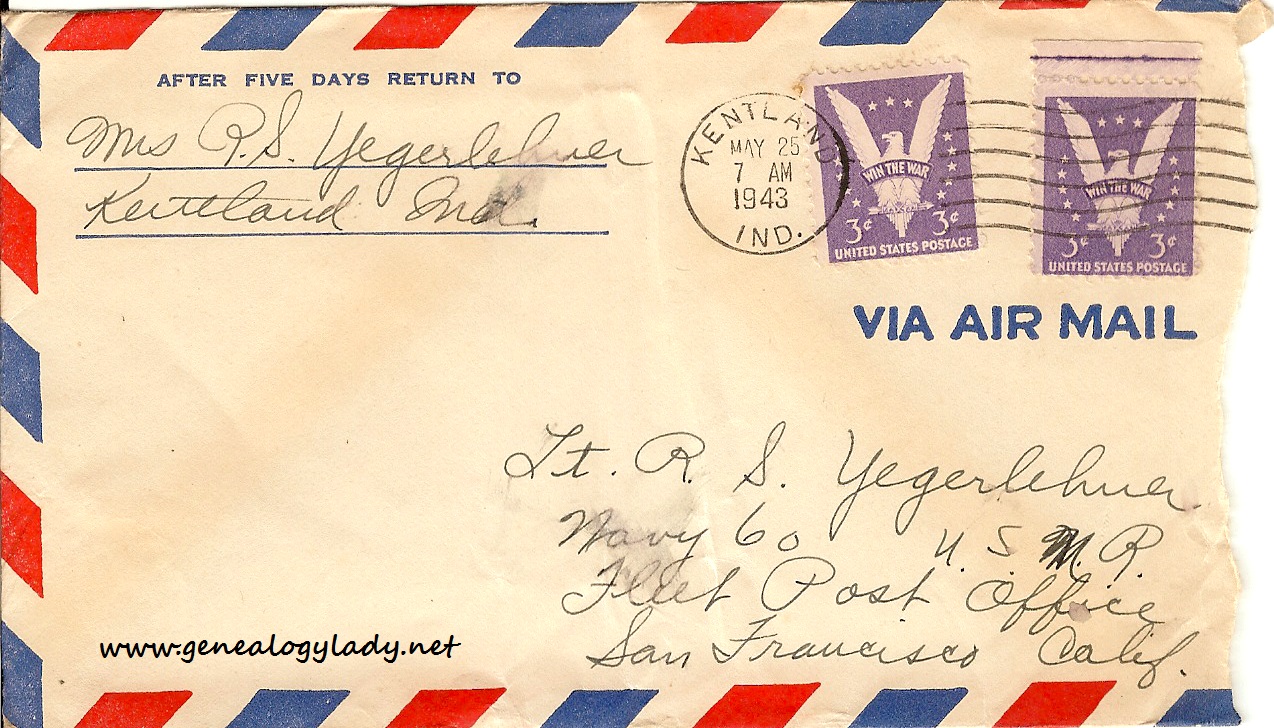 AFTER FIVE DAYS RETURN TO
Mrs R.S. Yegerlehner
Kentland Ind.
KENTLAND
MAY 25
7 AM
1943
IND.
WIN THE WAR
3¢ 3¢
UNITED STATES POSTAGE
WIN THE WAR
3¢ 3¢
UNITED STATES POSTAGE
VIA AIR MAIL
Lt. R. S. Yegerlehner
Navy 60 U. S. N. R.
Fleet Post Office
San Francisco Calif.
www.genealogylady.net